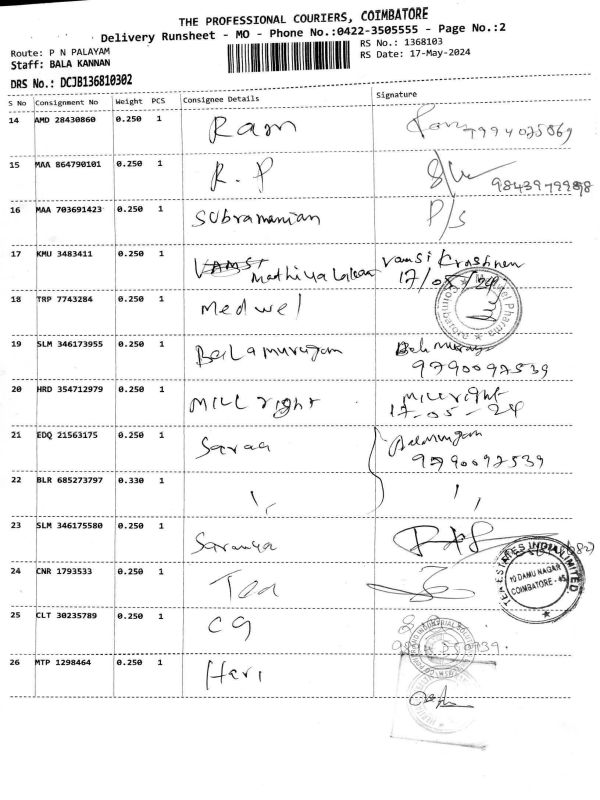 THE PROFESSIONAL COURIERS, COIMBATORE
Delivery Runsheet - MO - Phone No.:0422-3505555 - Page No.:2
Route: P N PALAYAM
RS No.: 1368103
Staff: BALA KANNAN
RS Date: 17-May-2024
DRS No.: DCJB136810302
S No Consignment No Weight PCS Consignee Details Signature
14 AMD 28430860 0.250 1 Ram
15 MAA 864790101 0.250 1 R.P
16 MAA 703691423 0.250 1 Subramanian P/s
17 KMU 3483411 0.250 1 VAMSI Vamsi
17/05/24
18 TRP 7743284 0.250 1 Medwel
19 SLM 346173955 0.250 1 Balamurugan
9790097539
20 HRD 354712979 0.250 1 Millright Millright
17-05-24
21 EDQ 21563175 0.250 1 Balamurugan
9790097539
22 BLR 685273797 0.330 1
23 SLM 346175580 0.250 1 Saranya
24 CNR 1793533 0.250 1 Tea
TEA ESTATES INDIA LIMITED
10 DAMU NAGAR
COIMBATORE - 45
25 CLT 30235789 0.250 1 CG
26 MTP 1298464 0.250 1 Hari